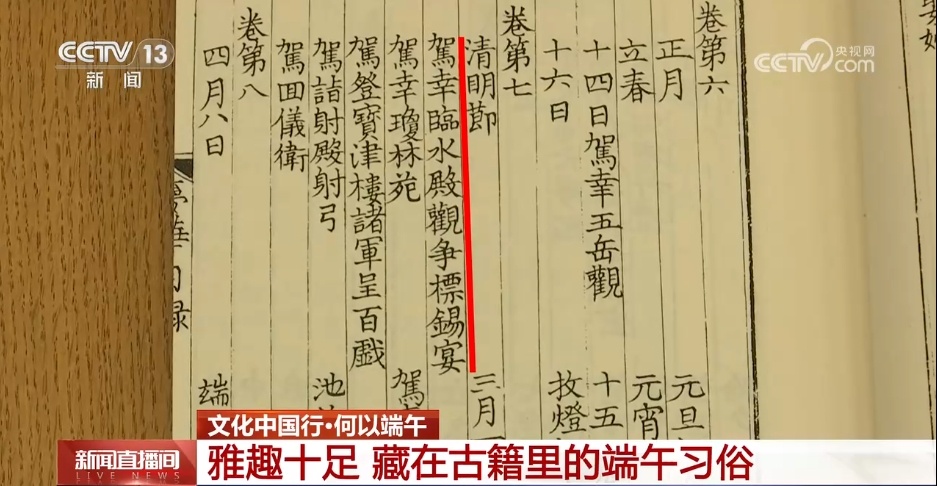 CCTV 13
新闻
央视网
CCTV.com
卷第六
正月 元旦
立春 元宵
十四日駕幸五岳觀 十五
十六日 收燈
卷第七
清明節 三月
駕幸臨水殿觀争標錫宴
駕幸瓊林苑 駕
駕登寶津樓諸軍呈百戲
駕詣射殿射弓 池
駕回儀衛
卷第八
四月八日 端
夢華目録
文化中国行·何以端午
新闻直播间
LIVE NEWS
雅趣十足 藏在古籍里的端午习俗